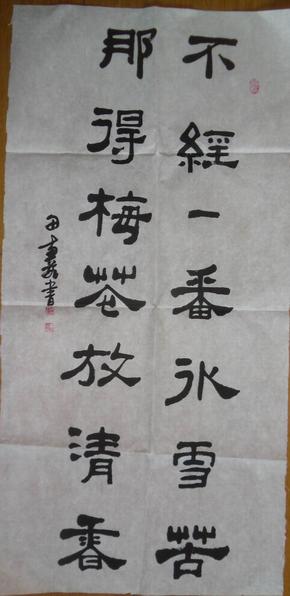 不經一番冰雪苦
那得梅花放清香